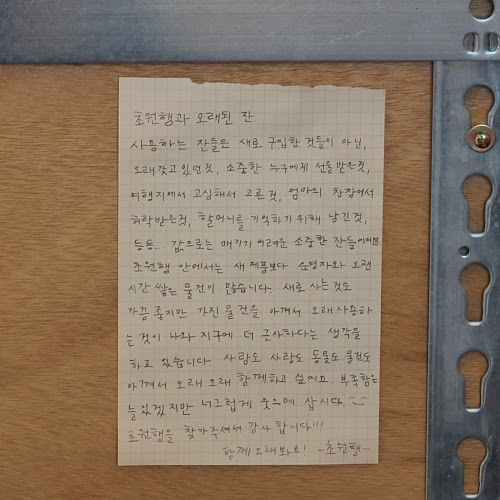 초원행과 오래된 잔
사용하는 잔들은 새로 구입한 것들이 아닌,
오래갖고 있던 것, 소중한 누구에게 선물 받은것,
여행지에서 고심해서 고른 것, 엄마의 찬장에서
허락받은것, 할머니를 기억하기 위해 남긴것,
등등.. 값으로는 매기기 어려운 소중한 잔들이에요.
초원행 안에서는 새 제품보다 운영자와 오랜
시간 쌓은 물건이 많습니다. 새로 사는것도
가끔 좋지만 가진 물건을 아껴서 오래 사용하
는 것이 나와 지구에 더 근사하다는 생각을
하고 있습니다. 사람도 사랑도 동물도 물건도
아껴서 오래 오래 함께하고 싶어요. 부족함은
늘 있겠지만 너그럽게 웃으며 삽시다.
초원행을 찾아주셔서 감사 합니다!!!
함께 오래봐요! -초원행-